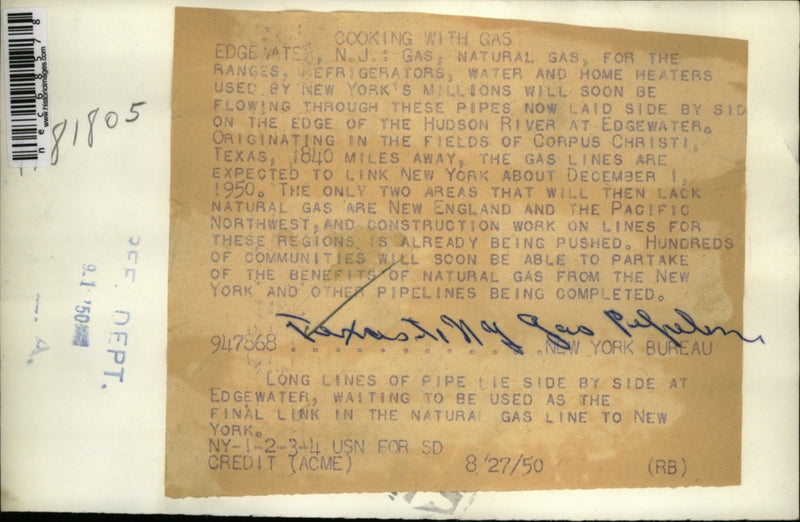 COOKING WITH GAS
EDGEWATER, N.J.: GAS, NATURAL GAS, FOR THE
RANGES, REFRIGERATORS, WATER AND HOME HEATERS
USED BY NEW YORK'S MILLIONS WILL SOON BE
FLOWING THROUGH THESE PIPES NOW LAID SIDE BY SID
ON THE EDGE OF THE HUDSON RIVER AT EDGEWATER.
ORIGINATING IN THE FIELDS OF CORPUS CHRISTI,
TEXAS, 1840 MILES AWAY, THE GAS LINES ARE
EXPECTED TO LINK NEW YORK ABOUT DECEMBER 1,
1950. THE ONLY TWO AREAS THAT WILL THEN LACK
NATURAL GAS ARE NEW ENGLAND AND THE PACIFIC
NORTHWEST, AND CONSTRUCTION WORK ON LINES FOR
THESE REGIONS IS ALREADY BEING PUSHED. HUNDREDS
OF COMMUNITIES WILL SOON BE ABLE TO PARTAKE
OF THE BENEFITS OF NATURAL GAS FROM THE NEW
YORK AND OTHER PIPELINES BEING COMPLETED.
Texas NY Gas
947868 . . . . . . . . . . . . NEW YORK BUREAU
LONG LINES OF PIPE LIE SIDE BY SIDE AT
EDGEWATER, WAITING TO BE USED AS THE
FINAL LINK IN THE NATURAL GAS LINE TO NEW
YORK.
NY-1-2-3-4 USN FOR SD
CREDIT (ACME) 8/27/50 (RB)
nec68578
www.historicimages.com
81805
REF. DEPT.
9-1-'50